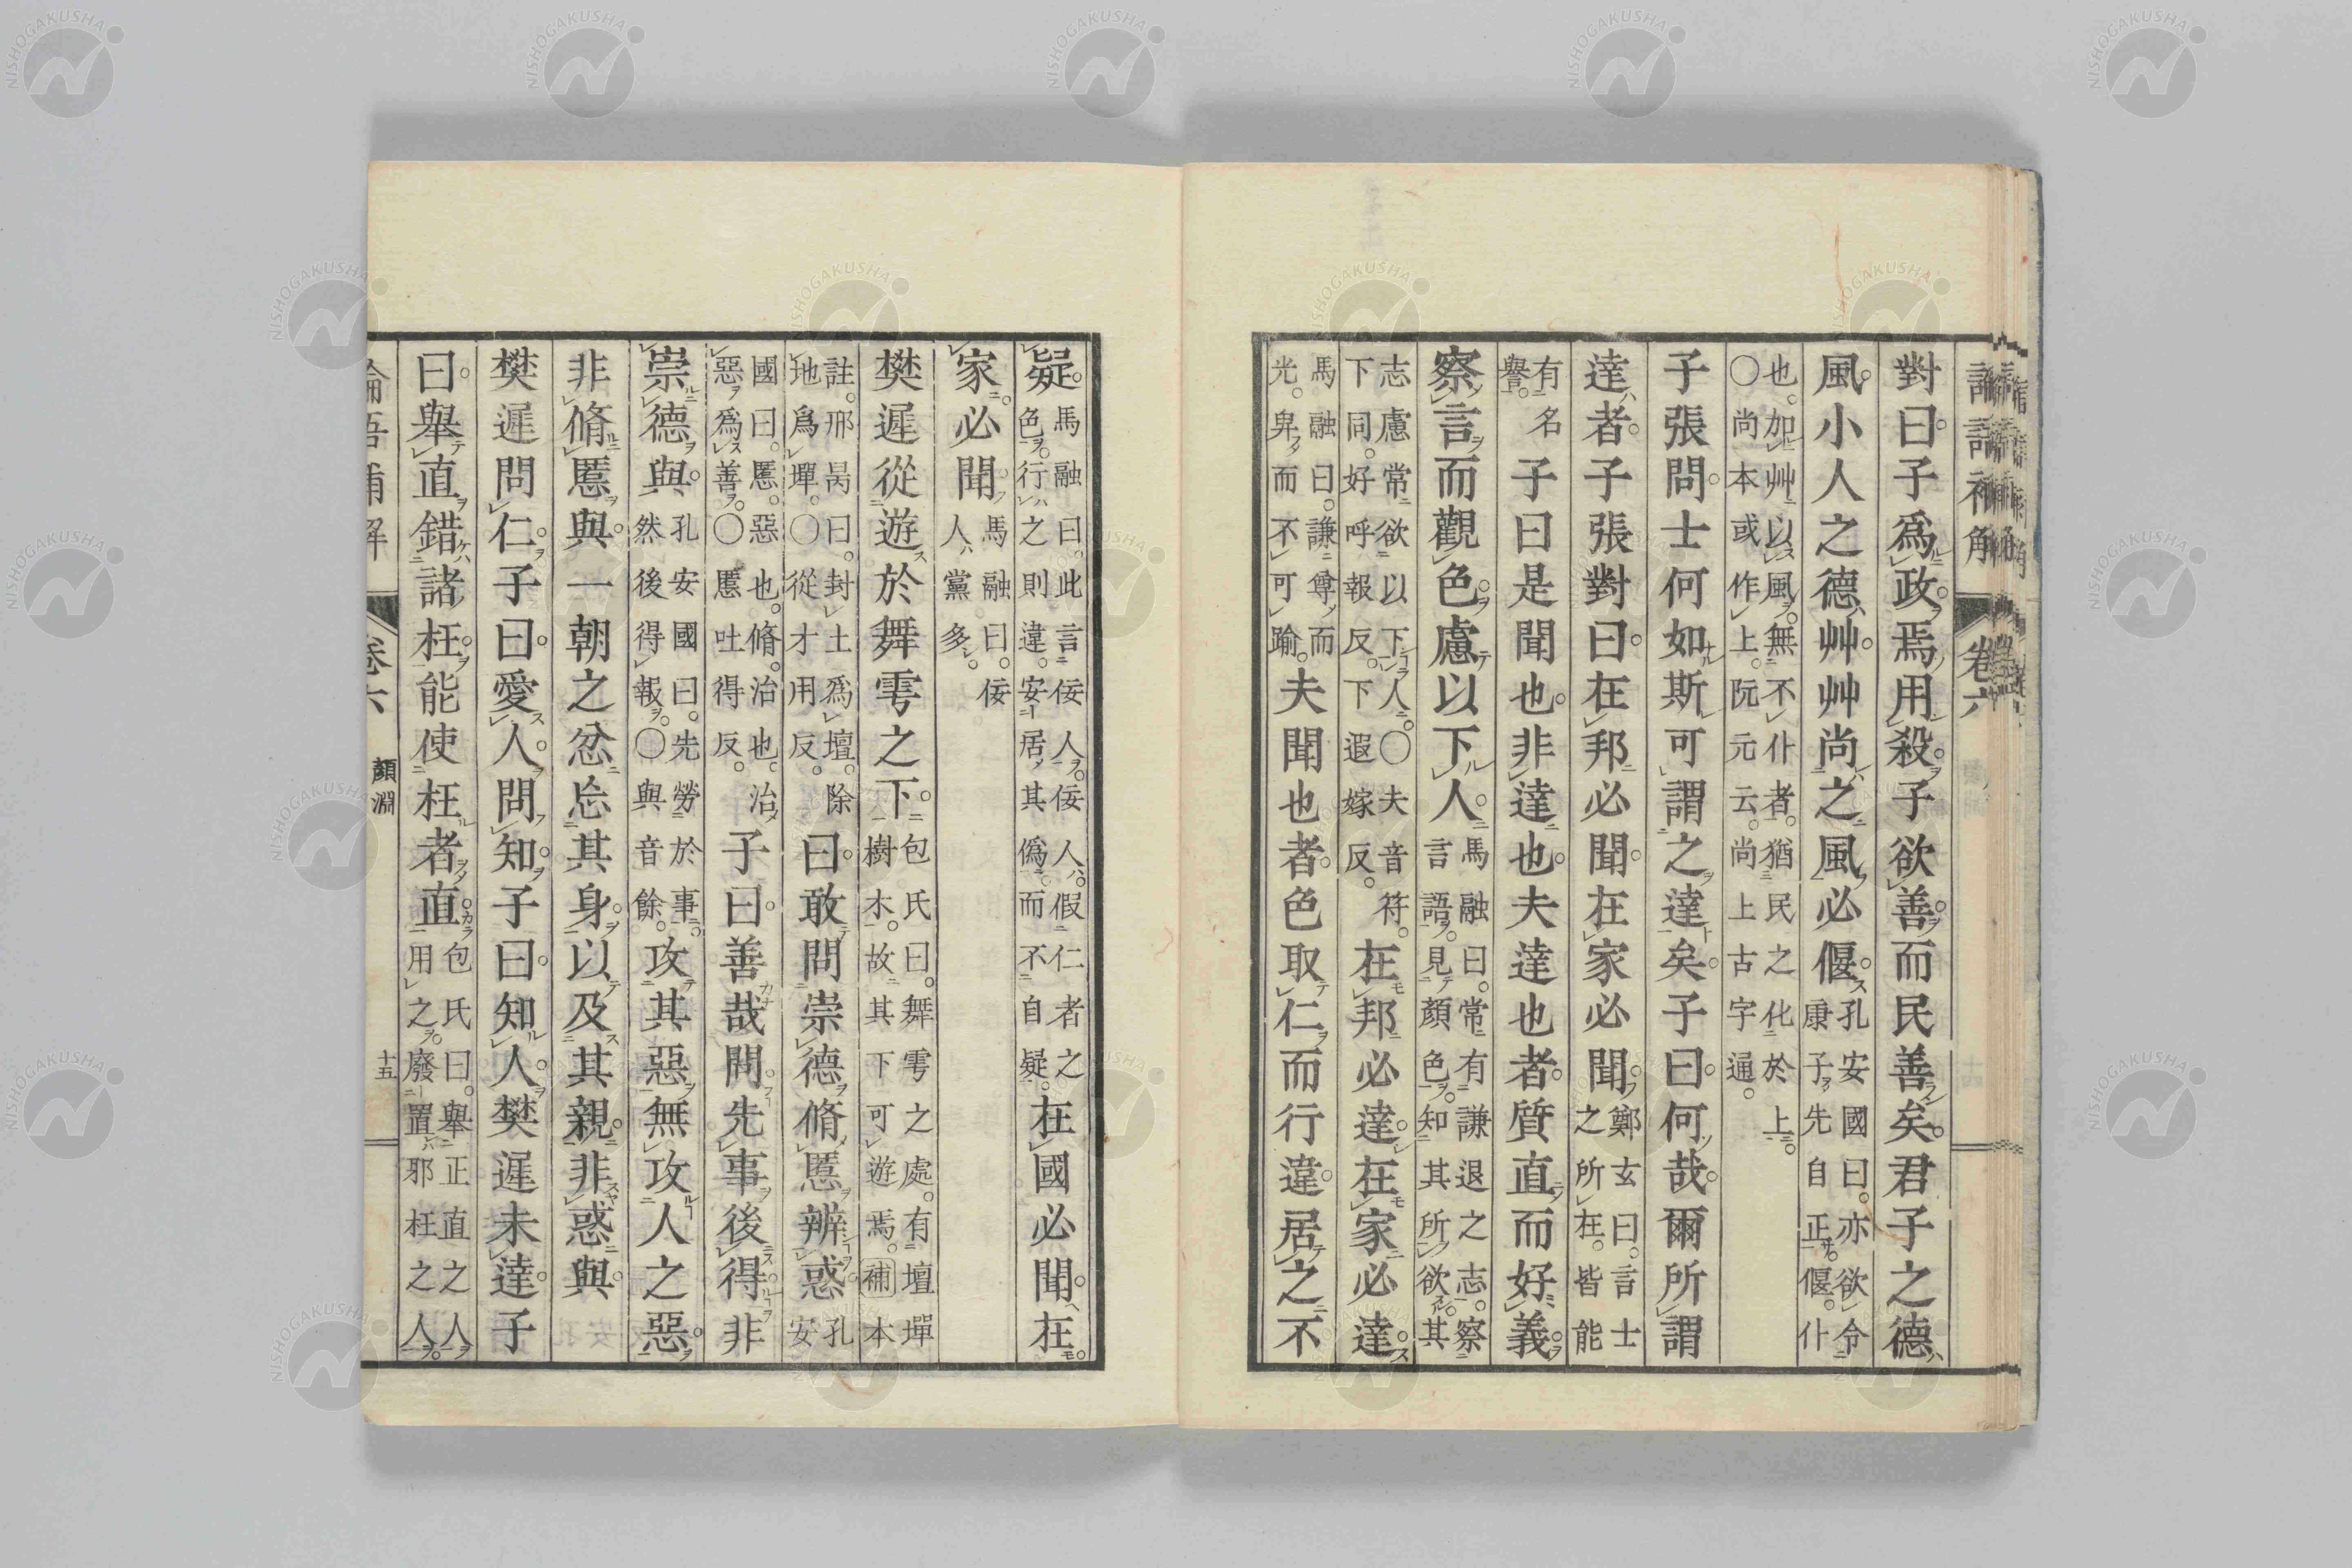 對曰子爲政焉用殺子欲善而民善矣君子之德
風小人之德艸艸尚之風必偃孔安國曰亦欲令康子先自正偃仆
也加艸以風無不仆者猶民之化於上○尚本或作上阮元云尚上古字通
子張問士何如斯可謂之達矣子曰何哉爾所謂
達者子張對曰在邦必聞在家必聞鄭玄曰言士之所在皆能
有名譽子曰是聞也非達也夫達也者質直而好義
察言而觀色慮以下人馬融曰常有謙退之志察言語見顏色知其所欲其
志慮常欲以下人○夫音符下同好呼報反下遐嫁反在邦必達在家必達
馬融曰謙尊而光卑而不可踰夫聞也者色取仁而行違居之不
疑馬融曰此言佞人佞人假仁者之色行之則違安居其僞而不自疑在國必聞在
家必聞馬融曰佞人黨多
樊遲從遊於舞雩之下包氏曰舞雩之處有壇墠樹木故其下可遊焉補本
註邢昺曰封土爲壇除地爲墠○從才用反曰敢問崇德脩慝辨惑孔安
國曰慝惡也脩治也治惡爲善○慝吐得反子曰善哉問先事後得非
崇德與孔安國曰先勞於事然後得報○與音餘攻其惡無攻人之惡
非脩慝與一朝之忿忘其身以及其親非惑與
樊遲問仁子曰愛人問知子曰知人樊遲未達子
曰舉直錯諸枉能使枉者直包氏曰舉正直之人用之廢置邪枉之人
論語補解 卷六 顏淵 十五
卷六
NISHOGAKUSHA